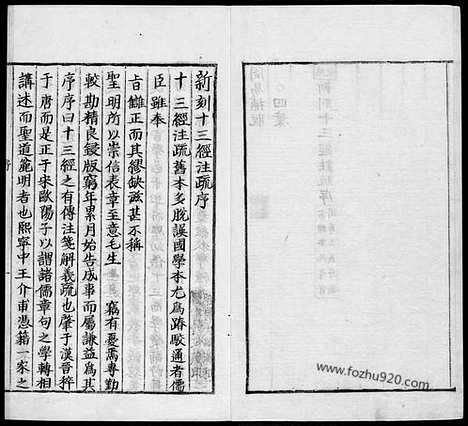 新刻十三經注疏序
十三經注疏舊本多脫誤國學本尤爲踳駁通者儒
臣雖奉
旨讎正而其繆缺滋甚不稱
聖明所以崇信表章至意毛生　竊有憂焉專勤
較勘精良鋟版窮年累月始告成事而屬謙益爲其
序序曰十三經之有傳注箋解義疏也肇于漢晉稡
于唐而是正于宋歐陽子以謂諸儒章句之學轉相
講述而聖道麄明者也熙寧中王介甫憑藉一家之
www.fozhu920.com